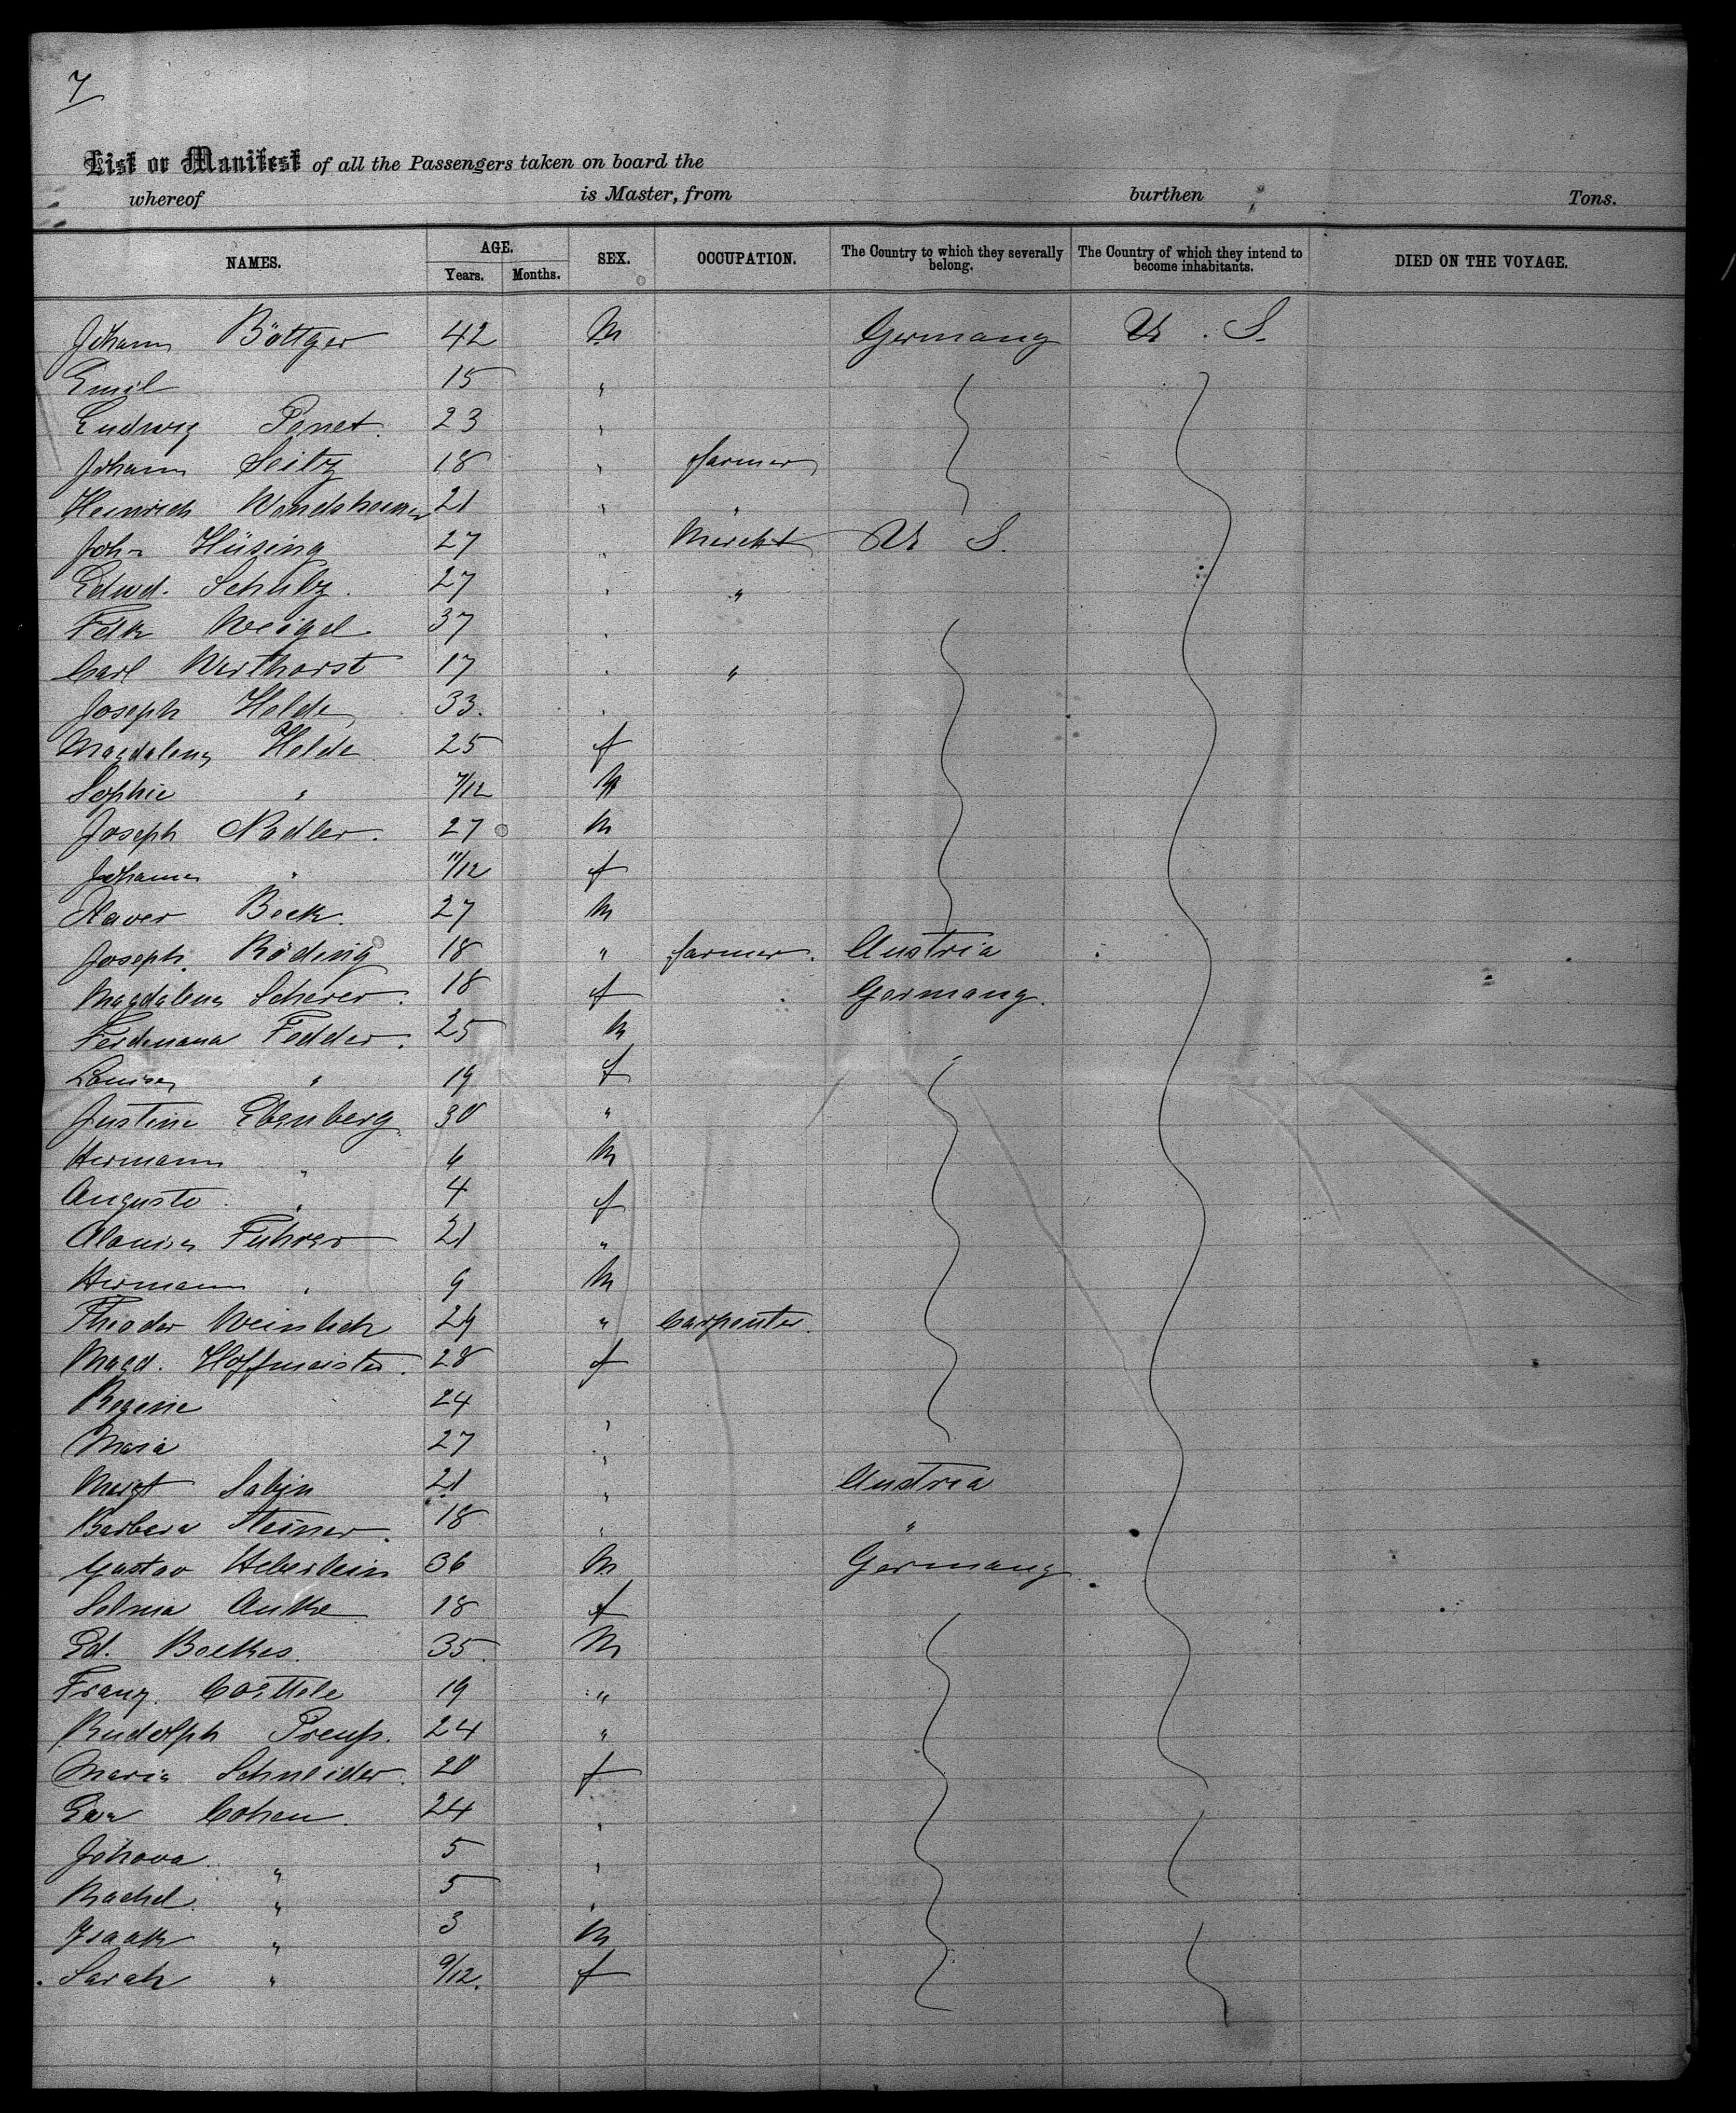 7
List or Manifest of all the Passengers taken on board the
whereof is Master, from burthen Tons.
NAMES. AGE. Years. Months. SEX. OCCUPATION. The Country to which they severally belong. The Country of which they intend to become inhabitants. DIED ON THE VOYAGE.
Johann Böttger 42 M Germany U. S.
Emil 15 "
Ludwig Penet. 23 "
Johann Seitz 18 " farmer
Heinrich 21 " "
Joh- Hüsing 27 " Mercht U S.
Edwd. Schulz. 27 " "
Fdk Weigel 37 "
Carl Werthorst 17 " "
Joseph Helde 33. "
Magdalena Helde 25 f
Sophie " 7/12
Joseph Nadler. 27 M
Johanna " 11/12 f
Xaver Beck. 27 M
Joseph. Röding 18 " farmer. Austria
Magdalena Scherer. 18 f Germany.
Ferdinand Fedder. 25 M
Louise " 19 f
Justine Ebenberg. 30 "
Hermann " 6 M
Auguste " 4 f
Aloisia Führer 21 "
Hermann " 9 M
Theodor Weinlich 29 " Carpenter.
Magd. Hoffmeister. 28 f
Regine 24 "
Maria 27 "
Margt Sabin 21 " Austria
Barbara Steiner. 18 " "
Gustav Heberlein 36 M Germany
Selma Anke 18 f
Ed. Boelkes. 35. M
Franz. 19 "
Rudolph Preuß. 24 "
Maria Schneider. 20 f
Eva Cohen. 24 "
Johova. " 5 "
Rachel. " 5 "
Isaak " 3 M
Sarah " 9/12. f